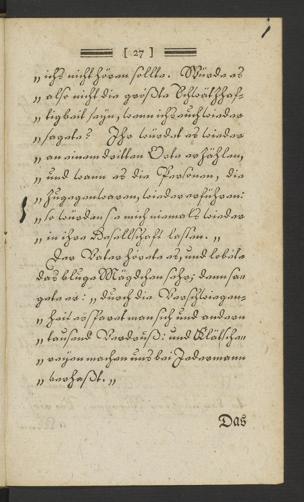 [ 27 ]
„ ichs nicht hören sollte. Würde es
„ also nicht die größte Schwatzhaf-
„ tigkeit seyn, wenn ichs euch wieder
„ sagete? Ihr würdet es wieder
„ an einem dritten Orte erzählen,
„ und wann es die Personen, die
„ zugegen waren, wieder erführen:
„ so würden sie mich niemals wieder
„ in ihre Gesellschaft lassen. „
Der Vater hörete es, und lobete
das kluge Mägdchen sehr; denn sa-
gete er: „ durch die Verschwiegen-
„ heit ersparet man sich und andern
„ tausend Verdruß: und Klätsche-
„ reyen machen uns bei Jedermann
„ verhaßt. „
Das